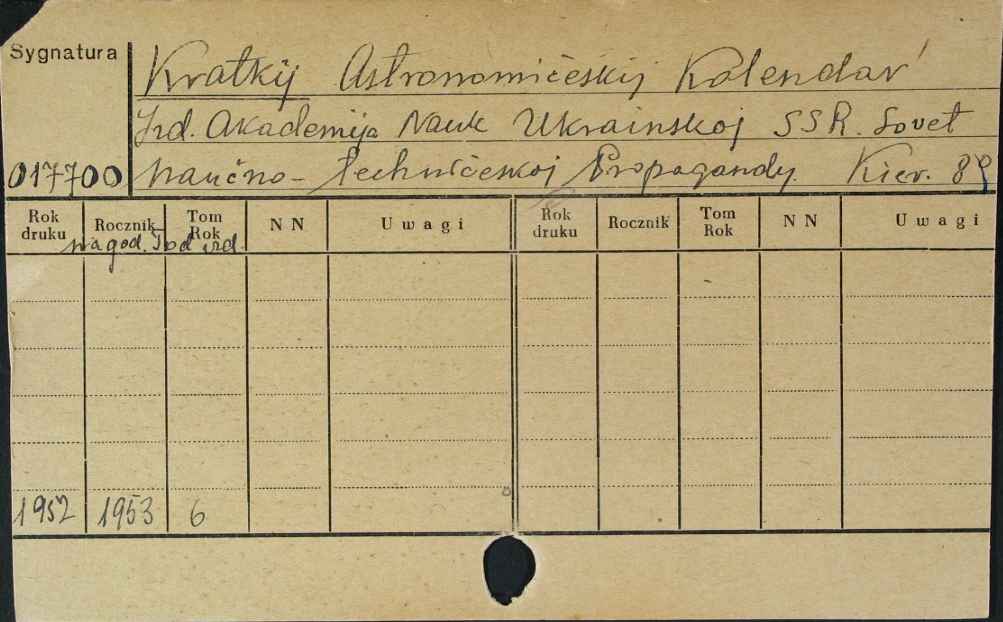 Sygnatura
Kratkij Astronomičeskij Kalendar'
Izd. Akademija Nauk Ukrainskoj SSR. Sovet
017700 naučno-techničeskoj Propagandy. Kiev. 8º
Rok druku Rocznik Tom Rok NN Uwagi Rok druku Rocznik Tom Rok NN Uwagi
na god. God izd.
1952 1953 6